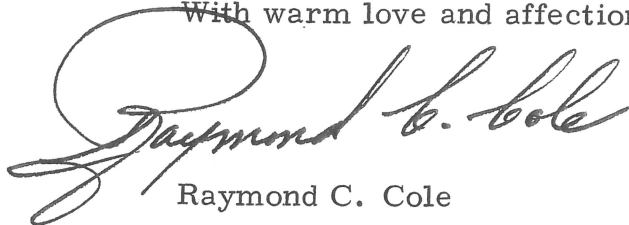 With warm love and affection
Raymond C. Cole
Raymond C. Cole